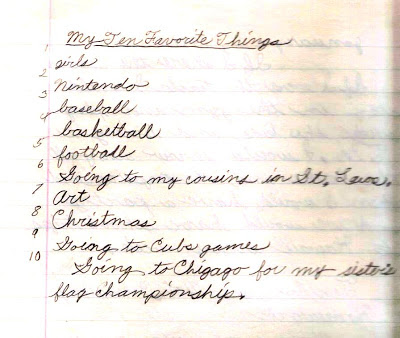 My Ten Favorite Things
1 girls
2 nintendo
3 baseball
4 basketball
5 football
6 Going to my cousins in St.
7 Art
8 Christmas
9 Going to Cubs games
10 Going to Chigago for my sister's
flag championship.